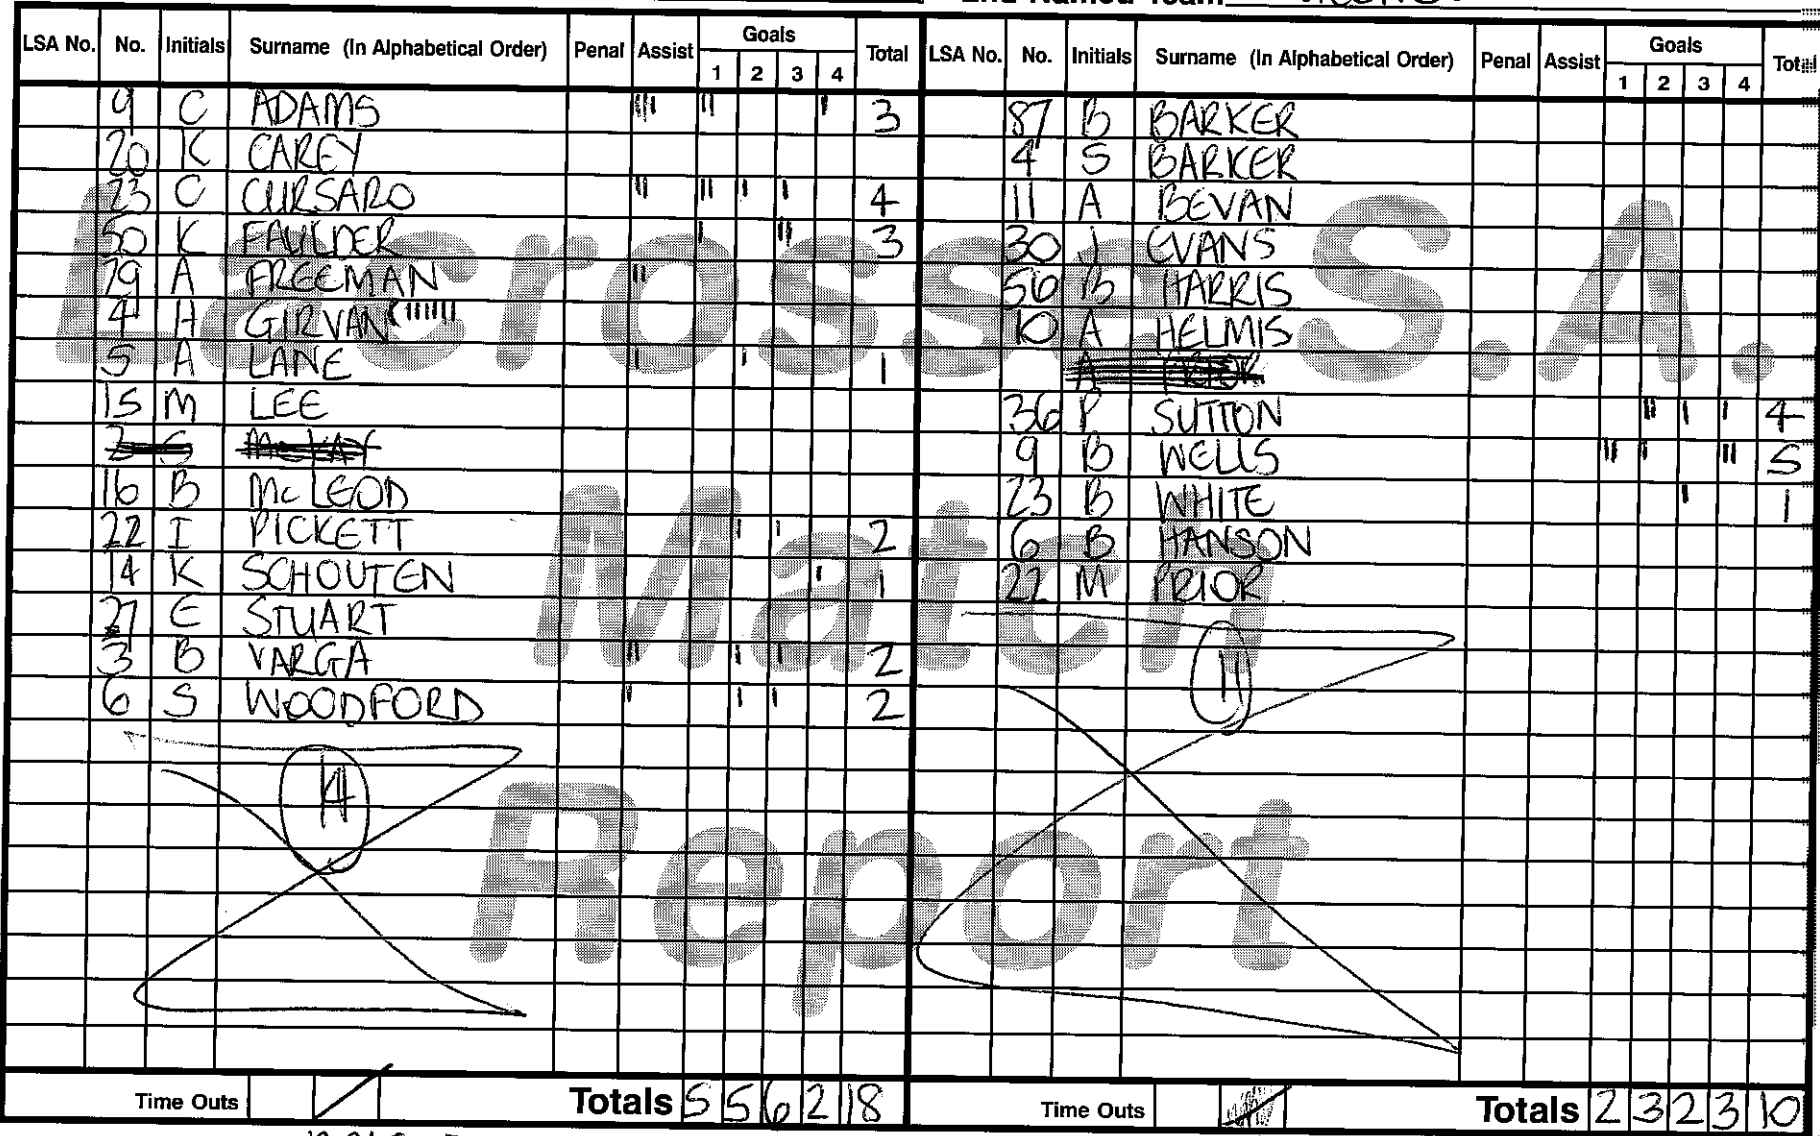 2nd Named Team
LSA No. No. Initials Surname (In Alphabetical Order) Penal Assist Goals 1 2 3 4 Total
9 C ADAMS |||| || | 3
20 K CAREY
23 C CURSARO || || | | 4
50 K FAULDER | || 3
29 A FREEMAN ||
4 H GIRVAN
5 A LANE | | 1
15 M LEE
16 B McLEOD
22 I PICKETT | | 2
14 K SCHOUTEN | 1
27 E STUART
3 B VARGA || | | 2
6 S WOODFORD | | | 2
14
Time Outs Totals 5 5 6 2 18
LSA No. No. Initials Surname (In Alphabetical Order) Penal Assist Goals 1 2 3 4 Total
87 B BARKER
4 S BARKER
11 A BEVAN
30 J EVANS
56 B HARRIS
10 A HELMIS
36 P SUTTON || | | 4
9 B WELLS || | || 5
23 B WHITE | 1
6 B HANSON
22 M PRIOR
11
Time Outs Totals 2 3 2 3 10
Lacrosse S.A.
Match
Report